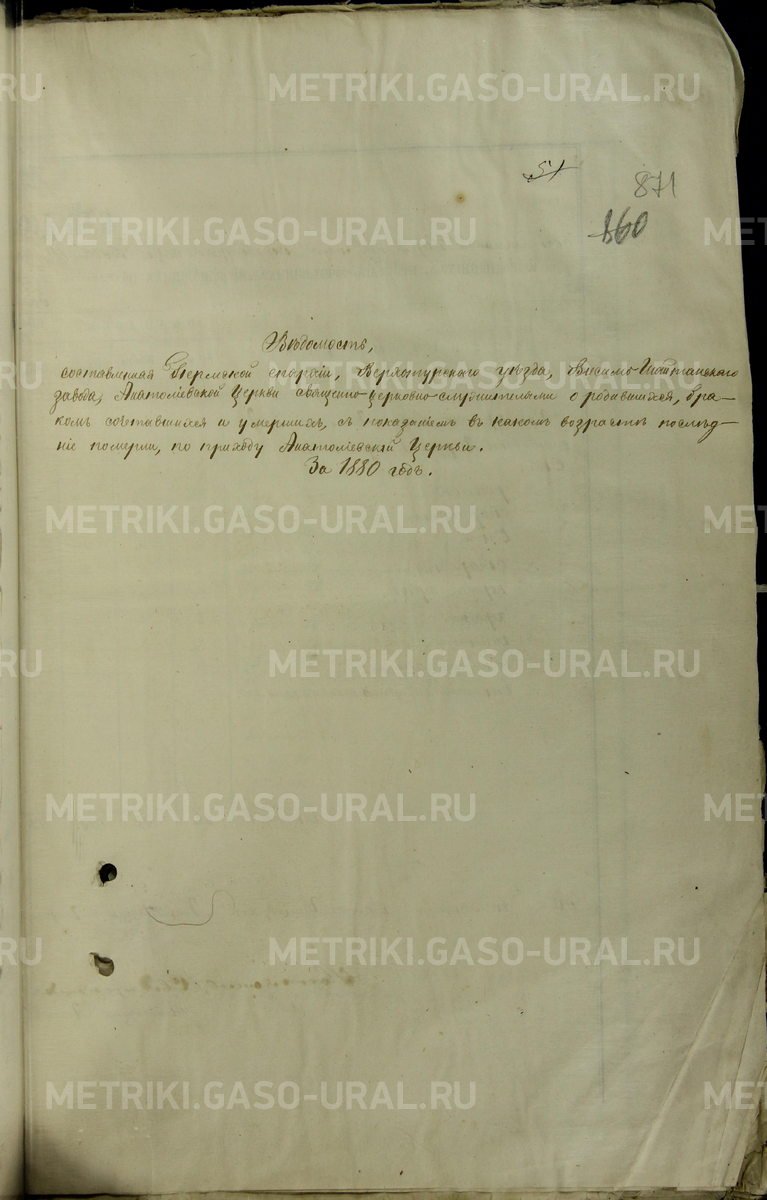 51
871
860
Вѣдомость,
составленная Пермской епархіи, Верхотурскаго уѣзда, Висимо-Шайтанскаго
завода, Анатоліевской Церкви священно-церковно-служителями о родившихся, бра-
комъ сочетавшихся и умершихъ, съ показаніемъ въ какомъ возрастѣ послѣд-
ніе померли, по приходу Анатоліевской Церкви.
За 1880 годъ.
METRIKI.GASO-URAL.RU
METRIKI.GASO-URAL.RU
METRIKI.GASO-URAL.RU
METRIKI.GASO-URAL.RU
METRIKI.GASO-URAL.RU
METRIKI.GASO-URAL.RU
METRIKI.GASO-URAL.RU
METRIKI.GASO-URAL.RU